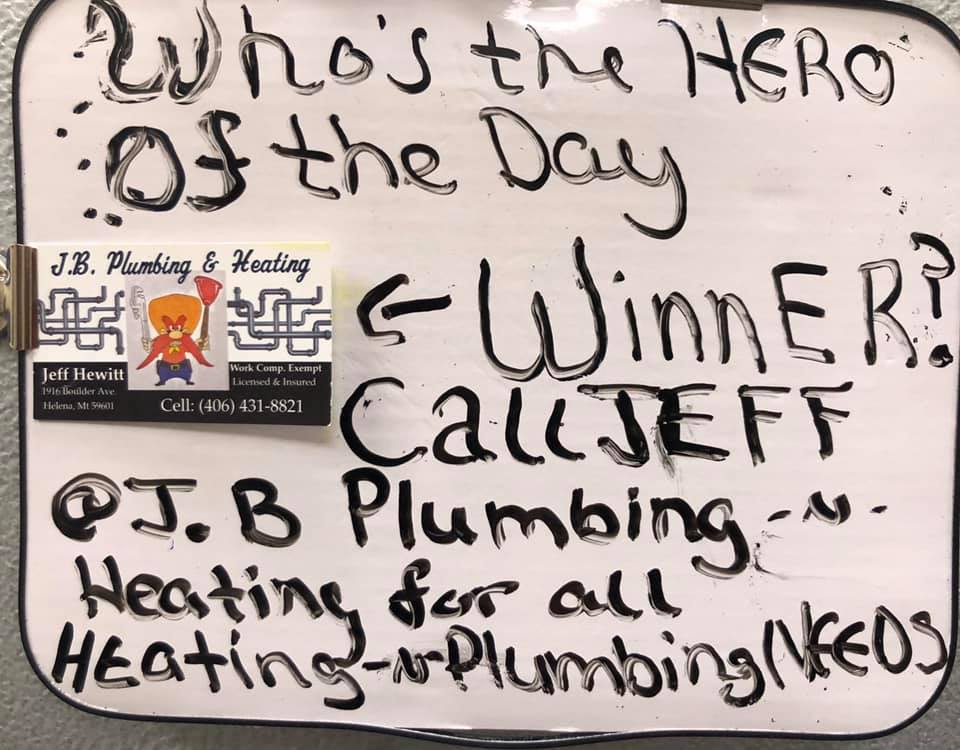 Who's the HERO
Of the Day
J.B. Plumbing & Heating
Jeff Hewitt
1916 Boulder Ave.
Helena, Mt 59601
Work Comp. Exempt
Licensed & Insured
Cell: (406) 431-8821
← WinnER?
Call JEFF
@ J.B Plumbing -n-
Heating for all
HEating-n-Plumbing NEEDS